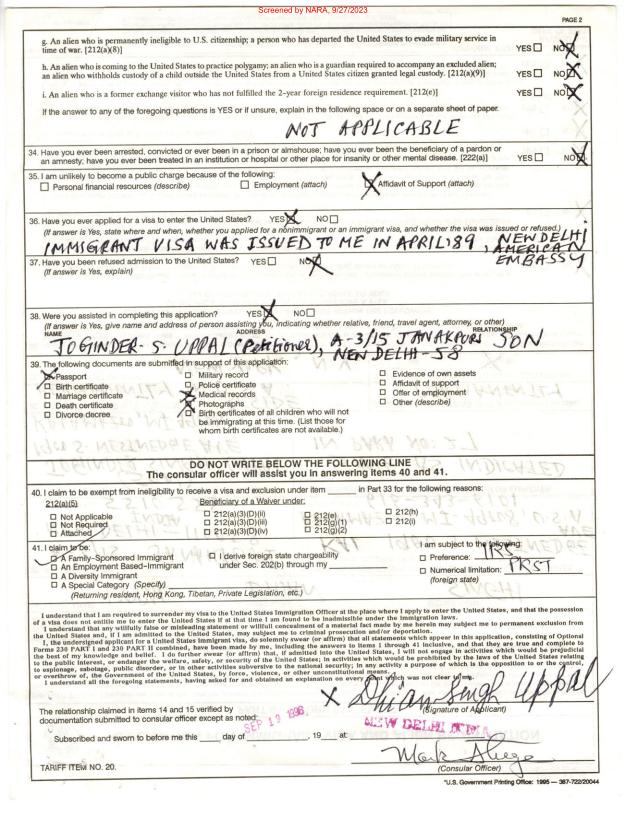 Screened by NARA, 9/27/2023
PAGE 2
g. An alien who is permanently ineligible to U.S. citizenship; a person who has departed the United States to evade military service in
time of war. [212(a)(8)] YES☐ NO☒
h. An alien who is coming to the United States to practice polygamy; an alien who is a guardian required to accompany an excluded alien;
an alien who withholds custody of a child outside the United States from a United States citizen granted legal custody. [212(a)(9)] YES ☐ NO☒
i. An alien who is a former exchange visitor who has not fulfilled the 2-year foreign residence requirement. [212(e)] YES ☐ NO☒
If the answer to any of the foregoing questions is YES or if unsure, explain in the following space or on a separate sheet of paper.
NOT APPLICABLE
34. Have you ever been arrested, convicted or ever been in a prison or almshouse; have you ever been the beneficiary of a pardon or
an amnesty; have you ever been treated in an institution or hospital or other place for insanity or other mental disease. [222(a)] YES ☐ NO☒
35. I am unlikely to become a public charge because of the following:
☐ Personal financial resources (describe) ☐ Employment (attach) ☒ Affidavit of Support (attach)
36. Have you ever applied for a visa to enter the United States? YES☒ NO☐
(If answer is Yes, state where and when, whether you applied for a nonimmigrant or an immigrant visa, and whether the visa was issued or refused.)
IMMIGRANT VISA WAS ISSUED TO ME IN APRIL'89, NEW DELHI
AMERICAN
EMBASSY
37. Have you been refused admission to the United States? YES ☐ NO☒
(If answer is Yes, explain)
38. Were you assisted in completing this application? YES☒ NO☐
(If answer is Yes, give name and address of person assisting you, indicating whether relative, friend, travel agent, attorney, or other)
NAME ADDRESS RELATIONSHIP
JOGINDER-S-UPPAL (Petitioner), A-3/15 JANAKPURI SON
NEW DELHI-58
39. The following documents are submitted in support of this application:
☒ Passport ☐ Military record ☐ Evidence of own assets
☐ Birth certificate ☐ Police certificate ☐ Affidavit of support
☐ Marriage certificate ☒ Medical records ☐ Offer of employment
☐ Death certificate ☒ Photographs ☐ Other (describe)
☐ Divorce decree ☐ Birth certificates of all children who will not
be immigrating at this time. (List those for
whom birth certificates are not available.)
DO NOT WRITE BELOW THE FOLLOWING LINE
The consular officer will assist you in answering items 40 and 41.
40. I claim to be exempt from ineligibility to receive a visa and exclusion under item ______ in Part 33 for the following reasons:
212(a)(5) Beneficiary of a Waiver under:
☐ Not Applicable ☐ 212(a)(3)(D)(ii) ☐ 212(e) ☐ 212(h)
☐ Not Required ☐ 212(a)(3)(D)(iii) ☐ 212(g)(1) ☐ 212(i)
☐ Attached ☐ 212(a)(3)(D)(iv) ☐ 212(g)(2)
41. I claim to be: I am subject to the following:
☑ A Family-Sponsored Immigrant ☐ I derive foreign state chargeability ☐ Preference:
☐ An Employment Based-Immigrant under Sec. 202(b) through my ☐ Numerical limitation:
☐ A Diversity Immigrant (foreign state)
☐ A Special Category (Specify)
(Returning resident, Hong Kong, Tibetan, Private Legislation, etc.)
I understand that I am required to surrender my visa to the United States Immigration Officer at the place where I apply to enter the United States, and that the possession
of a visa does not entitle me to enter the United States if at that time I am found to be inadmissible under the immigration laws.
I understand that any willfully false or misleading statement or willful concealment of a material fact made by me herein may subject me to permanent exclusion from
the United States and, if I am admitted to the United States, may subject me to criminal prosecution and/or deportation.
I, the undersigned applicant for a United States immigrant visa, do solemnly swear (or affirm) that all statements which appear in this application, consisting of Optional
Forms 230 PART I and 230 PART II combined, have been made by me, including the answers to items 1 through 41 inclusive, and that they are true and complete to
the best of my knowledge and belief. I do further swear (or affirm) that, if admitted into the United States, I will not engage in activities which would be prejudicial
to the public interest, or endanger the welfare, safety, or security of the United States; in activities which would be prohibited by the laws of the United States relating
to espionage, sabotage, public disorder, or in other activities subversive to the national security; in any activity a purpose of which is the opposition to or the control,
or overthrow of, the Government of the United States, by force, violence, or other unconstitutional means.
I understand all the foregoing statements, having asked for and obtained an explanation on every point which was not clear to me.
X Dhian Singh Uppal
The relationship claimed in items 14 and 15 verified by (Signature of Applicant)
documentation submitted to consular officer except as noted:
SEP 19 1996 NEW DELHI INDIA
Subscribed and sworn to before me this ____ day of ________, 19 ___ at:
Mark
TARIFF ITEM NO. 20. (Consular Officer)
*U.S. Government Printing Office: 1995 — 387-722/20044